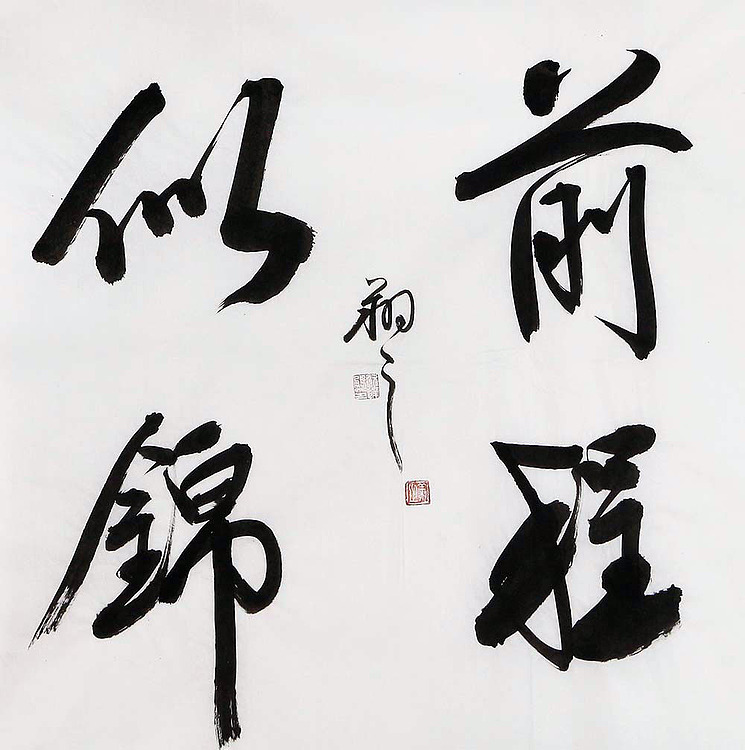 前程
似錦
翔之